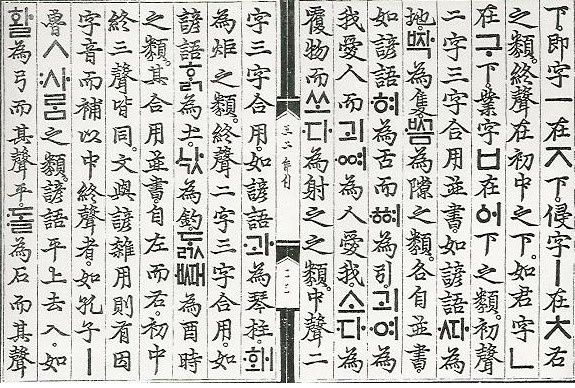 下即字ㅡ在ㅈ下。侵字ㅣ在ㅊ右
之類。終聲在初中之下。如君字ㄴ
在구下。業字ㅂ在ᅌᅥ下之類。初聲
二字三字合用並書如諺語ᄯᅡ為
地ᄧᅡᆨ為隻。ᄢᅳᆷ為隙之類。各自並書
如諺語혀為舌而ᅘᅧ為引。괴여為
我愛人而괴ᅇᅧ為人愛我。소다為
覆物而쏘다為射之之類。中聲二
字三字合用。如諺語과為琴柱。홰
為炬之類。終聲二字三字合用。如
諺語ᄒᆞᆰ為土。낛為釣。ᄃᆞᇌᄣᅢ為酉時
之類。其合用並書自左而右。初中
終三聲皆同。文與諺雜用則有因
字音而補以中終聲者。如孔子ㅣ
魯ㅅ사ᄅᆞᆷ之類。諺語平上去入。如
활為弓而其聲平。돌為石而其聲